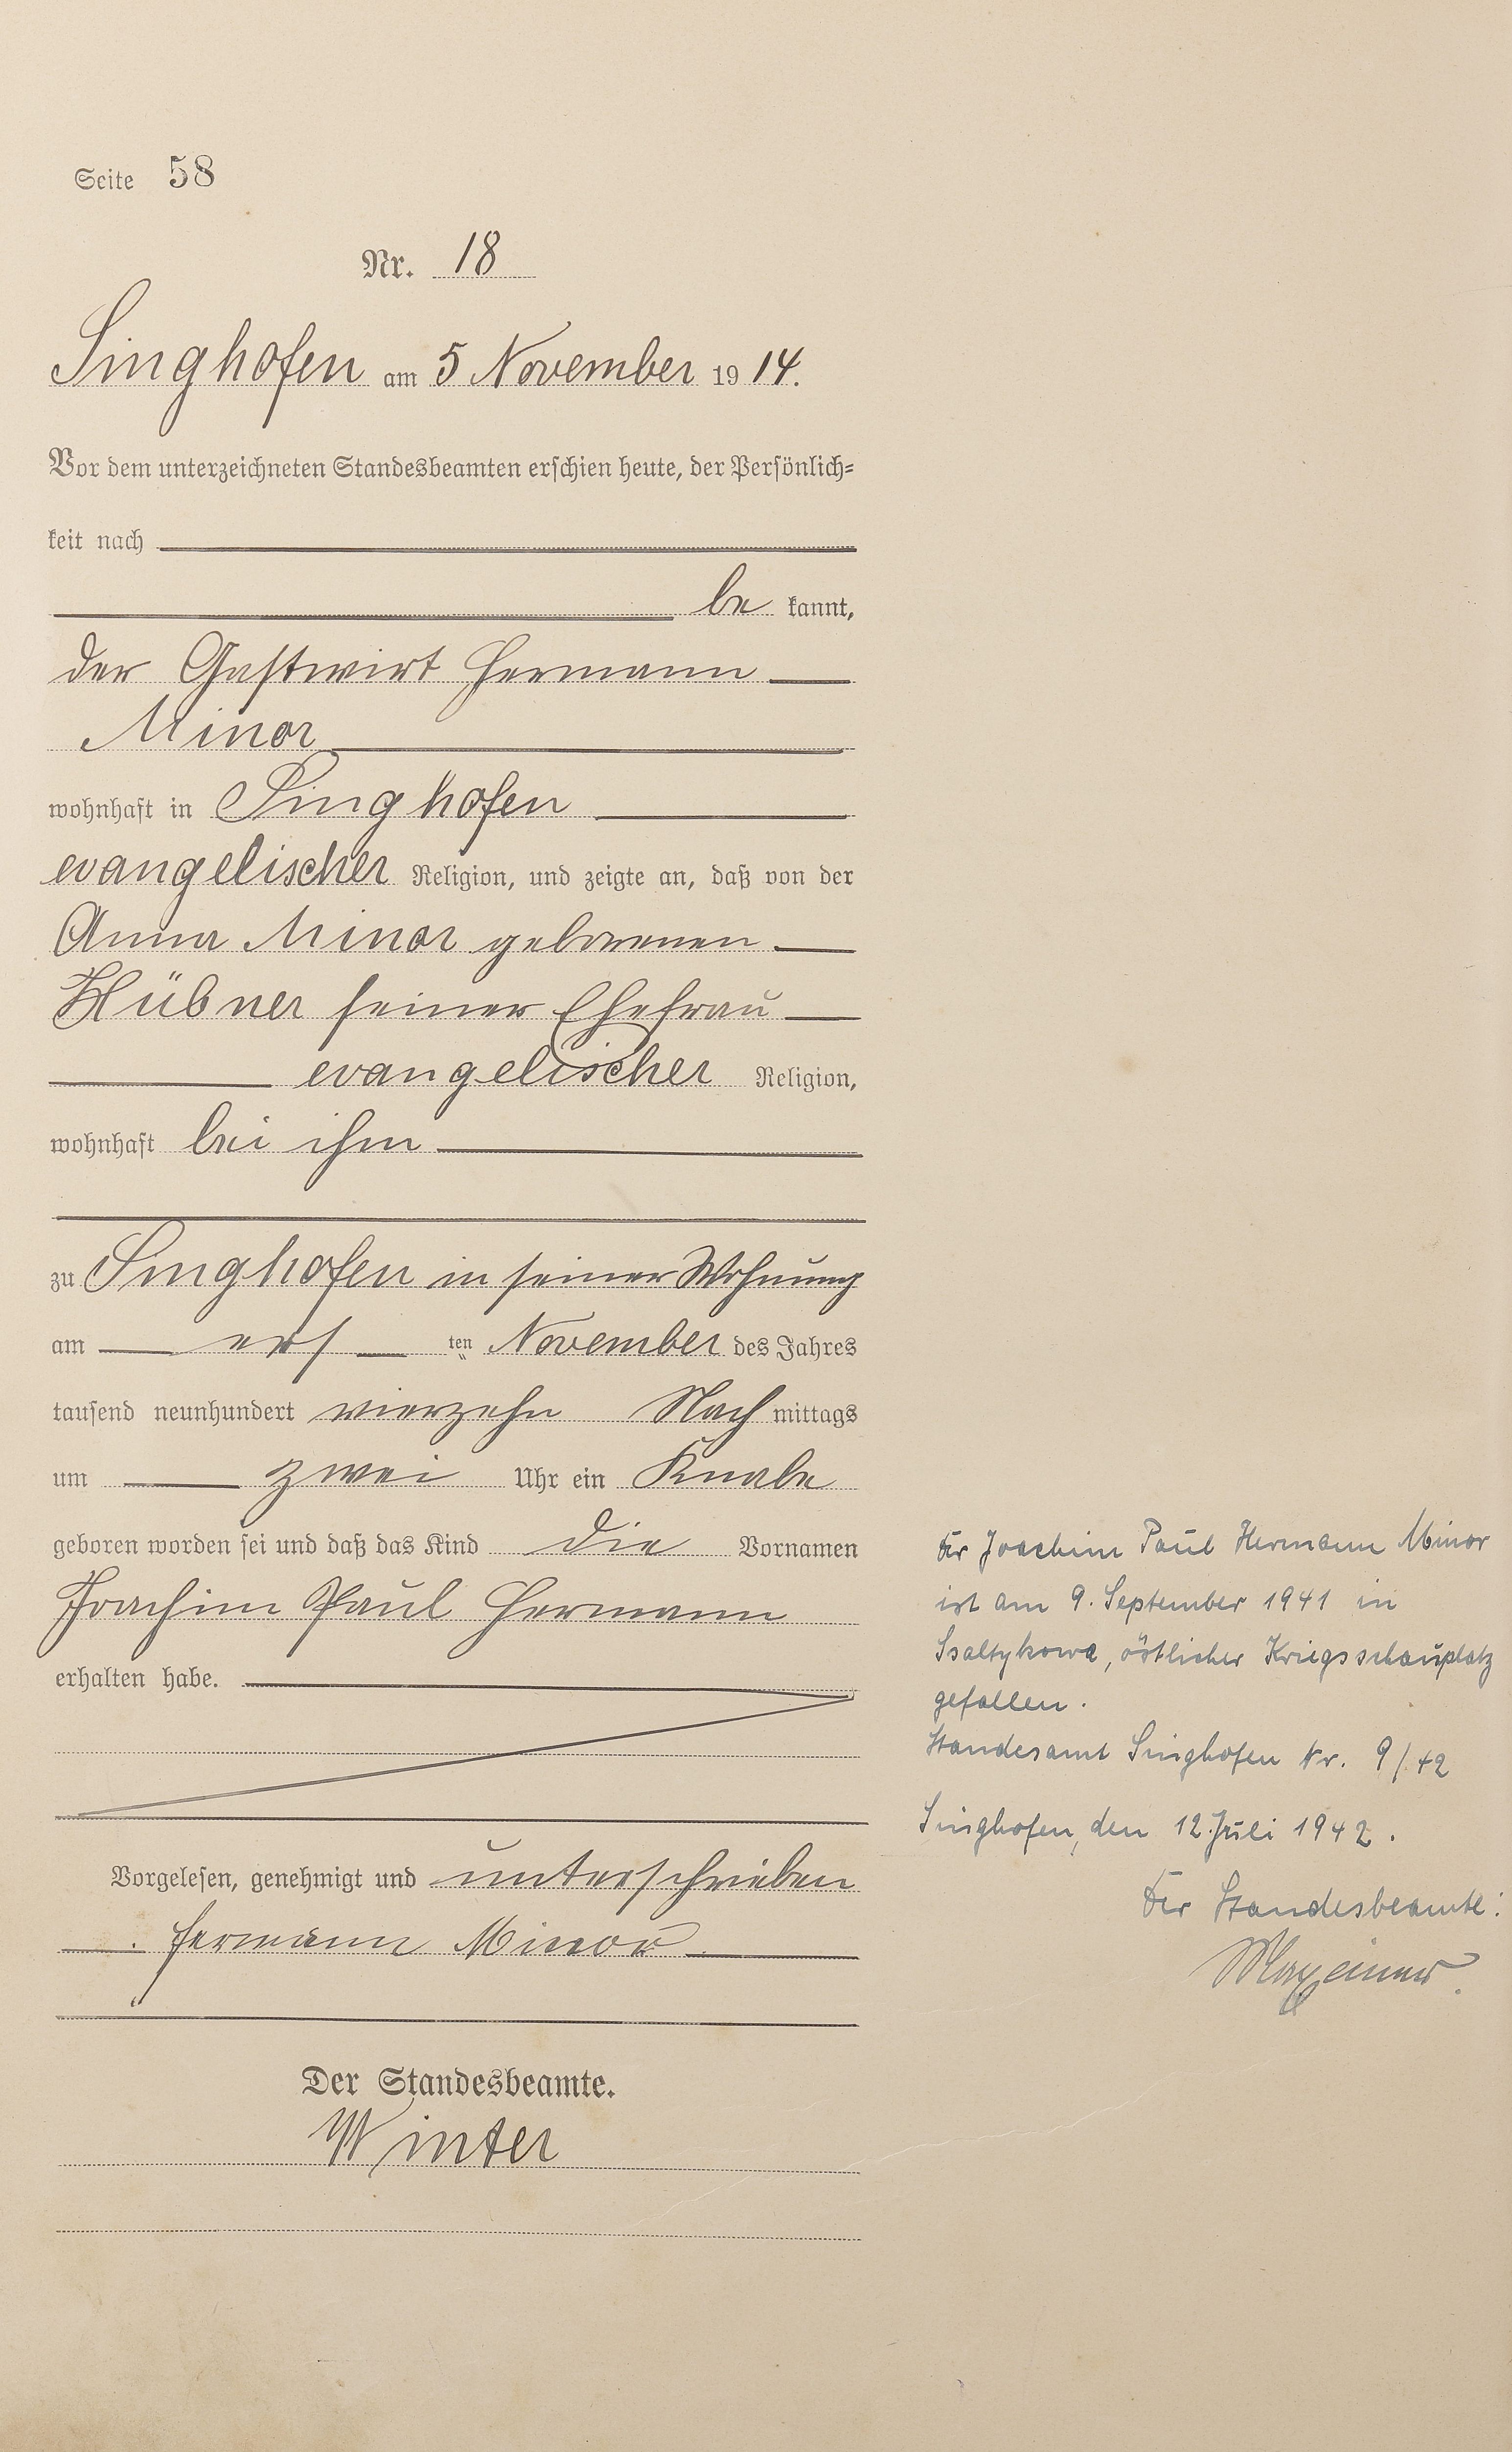 Seite 58
Nr. 18
Singhofen am 5 November 1914.
Vor dem unterzeichneten Standesbeamten erschien heute, der Persönlich=
keit nach
be kannt,
der Gastwirt Hermann
Minor
wohnhaft in Singhofen
evangelischer Religion, und zeigte an, daß von der
Anna Minor geborenen
Hübner seiner Ehefrau
evangelischer Religion,
wohnhaft bei ihm
zu Singhofen in seiner Wohnung
am ers ten November des Jahres
tausend neunhundert vierzehn Nachmittags
um zwei Uhr ein Knabe
geboren worden sei und daß das Kind die Vornamen
Joachim Paul Hermann
erhalten habe.
Vorgelesen, genehmigt und unterschrieben
Hermann Minor
Der Standesbeamte.
Winter
Der Joachim Paul Hermann Minor
ist am 9. September 1941 in
Ssaltykowa, östlicher Kriegsschauplatz
gefallen.
Standesamt Singhofen Nr. 9/42
Singhofen, den 12. Juli 1942.
Der Standesbeamte: